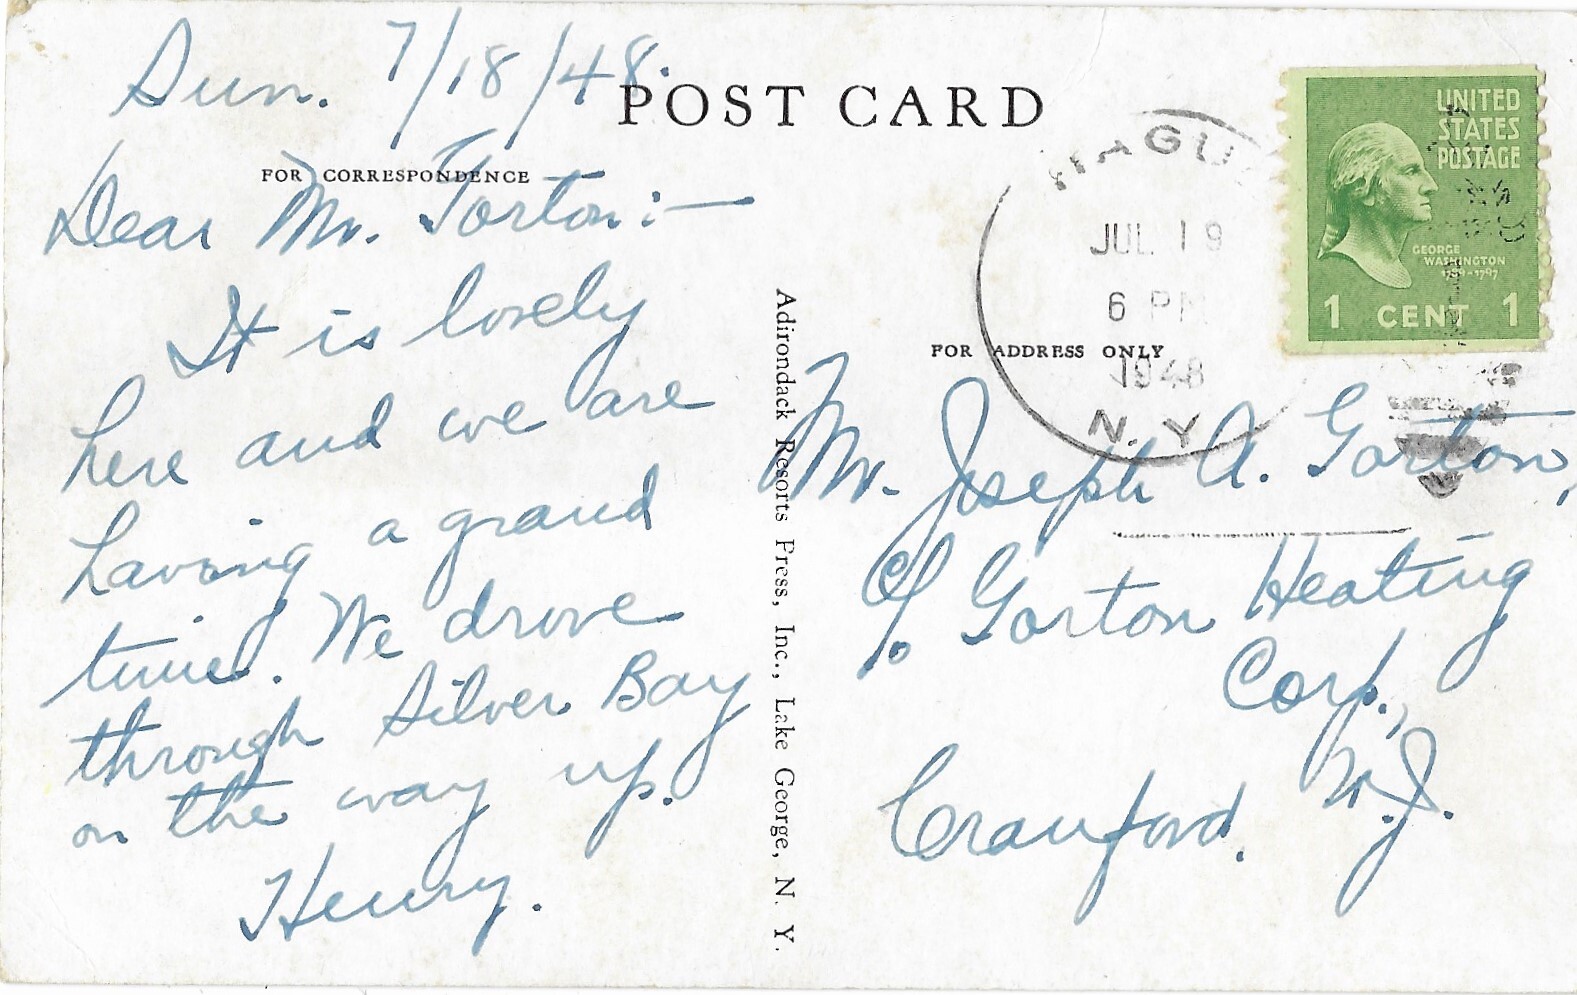 Sun. 7/18/48.
POST CARD
FOR CORRESPONDENCE
Dear Mr. Gorton:—
It is lovely
here and we are
having a grand
time. We drove
through Silver Bay
on the way up.
Henry.
Adirondack Resorts Press, Inc., Lake George, N. Y.
HAGUE
JUL 19
6 PM
1948
N.Y.
UNITED
STATES
POSTAGE
GEORGE
WASHINGTON
1789-1797
1 CENT 1
FOR ADDRESS ONLY
Mr. Joseph A. Gorton,
c/o Gorton Heating
Corp.,
Cranford. N.J.